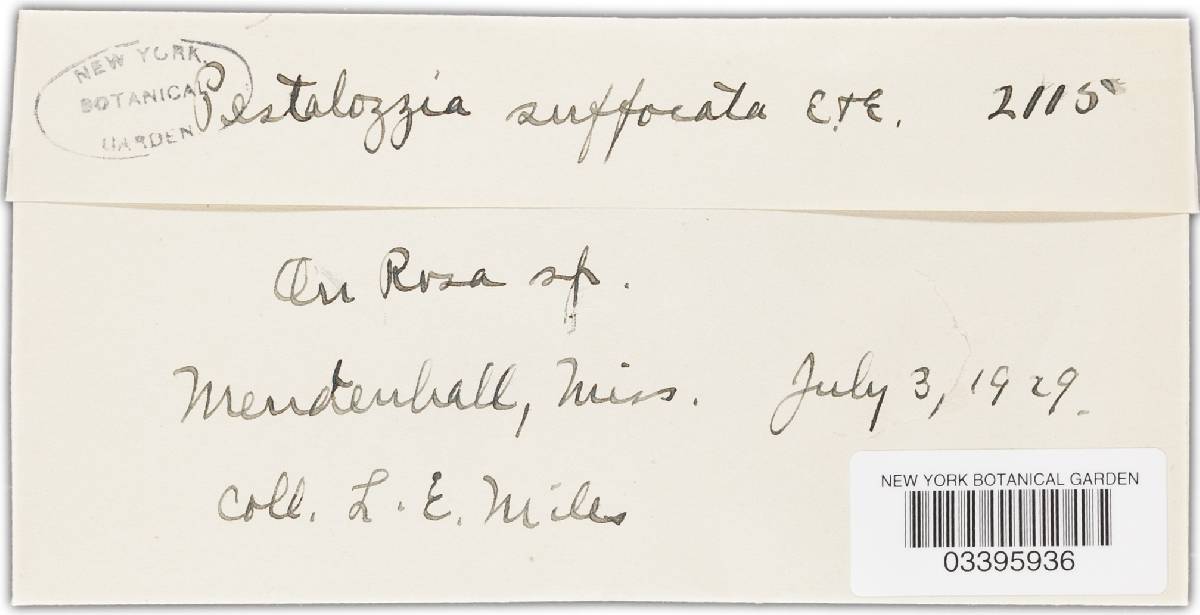 NEW YORK
BOTANICAL
GARDEN
Pestalozzia suffocata E.&E. 2115
On Rosa sp.
Mendenhall, Miss. July 3, 1929.
coll. L. E. Miles
NEW YORK BOTANICAL GARDEN
03395936